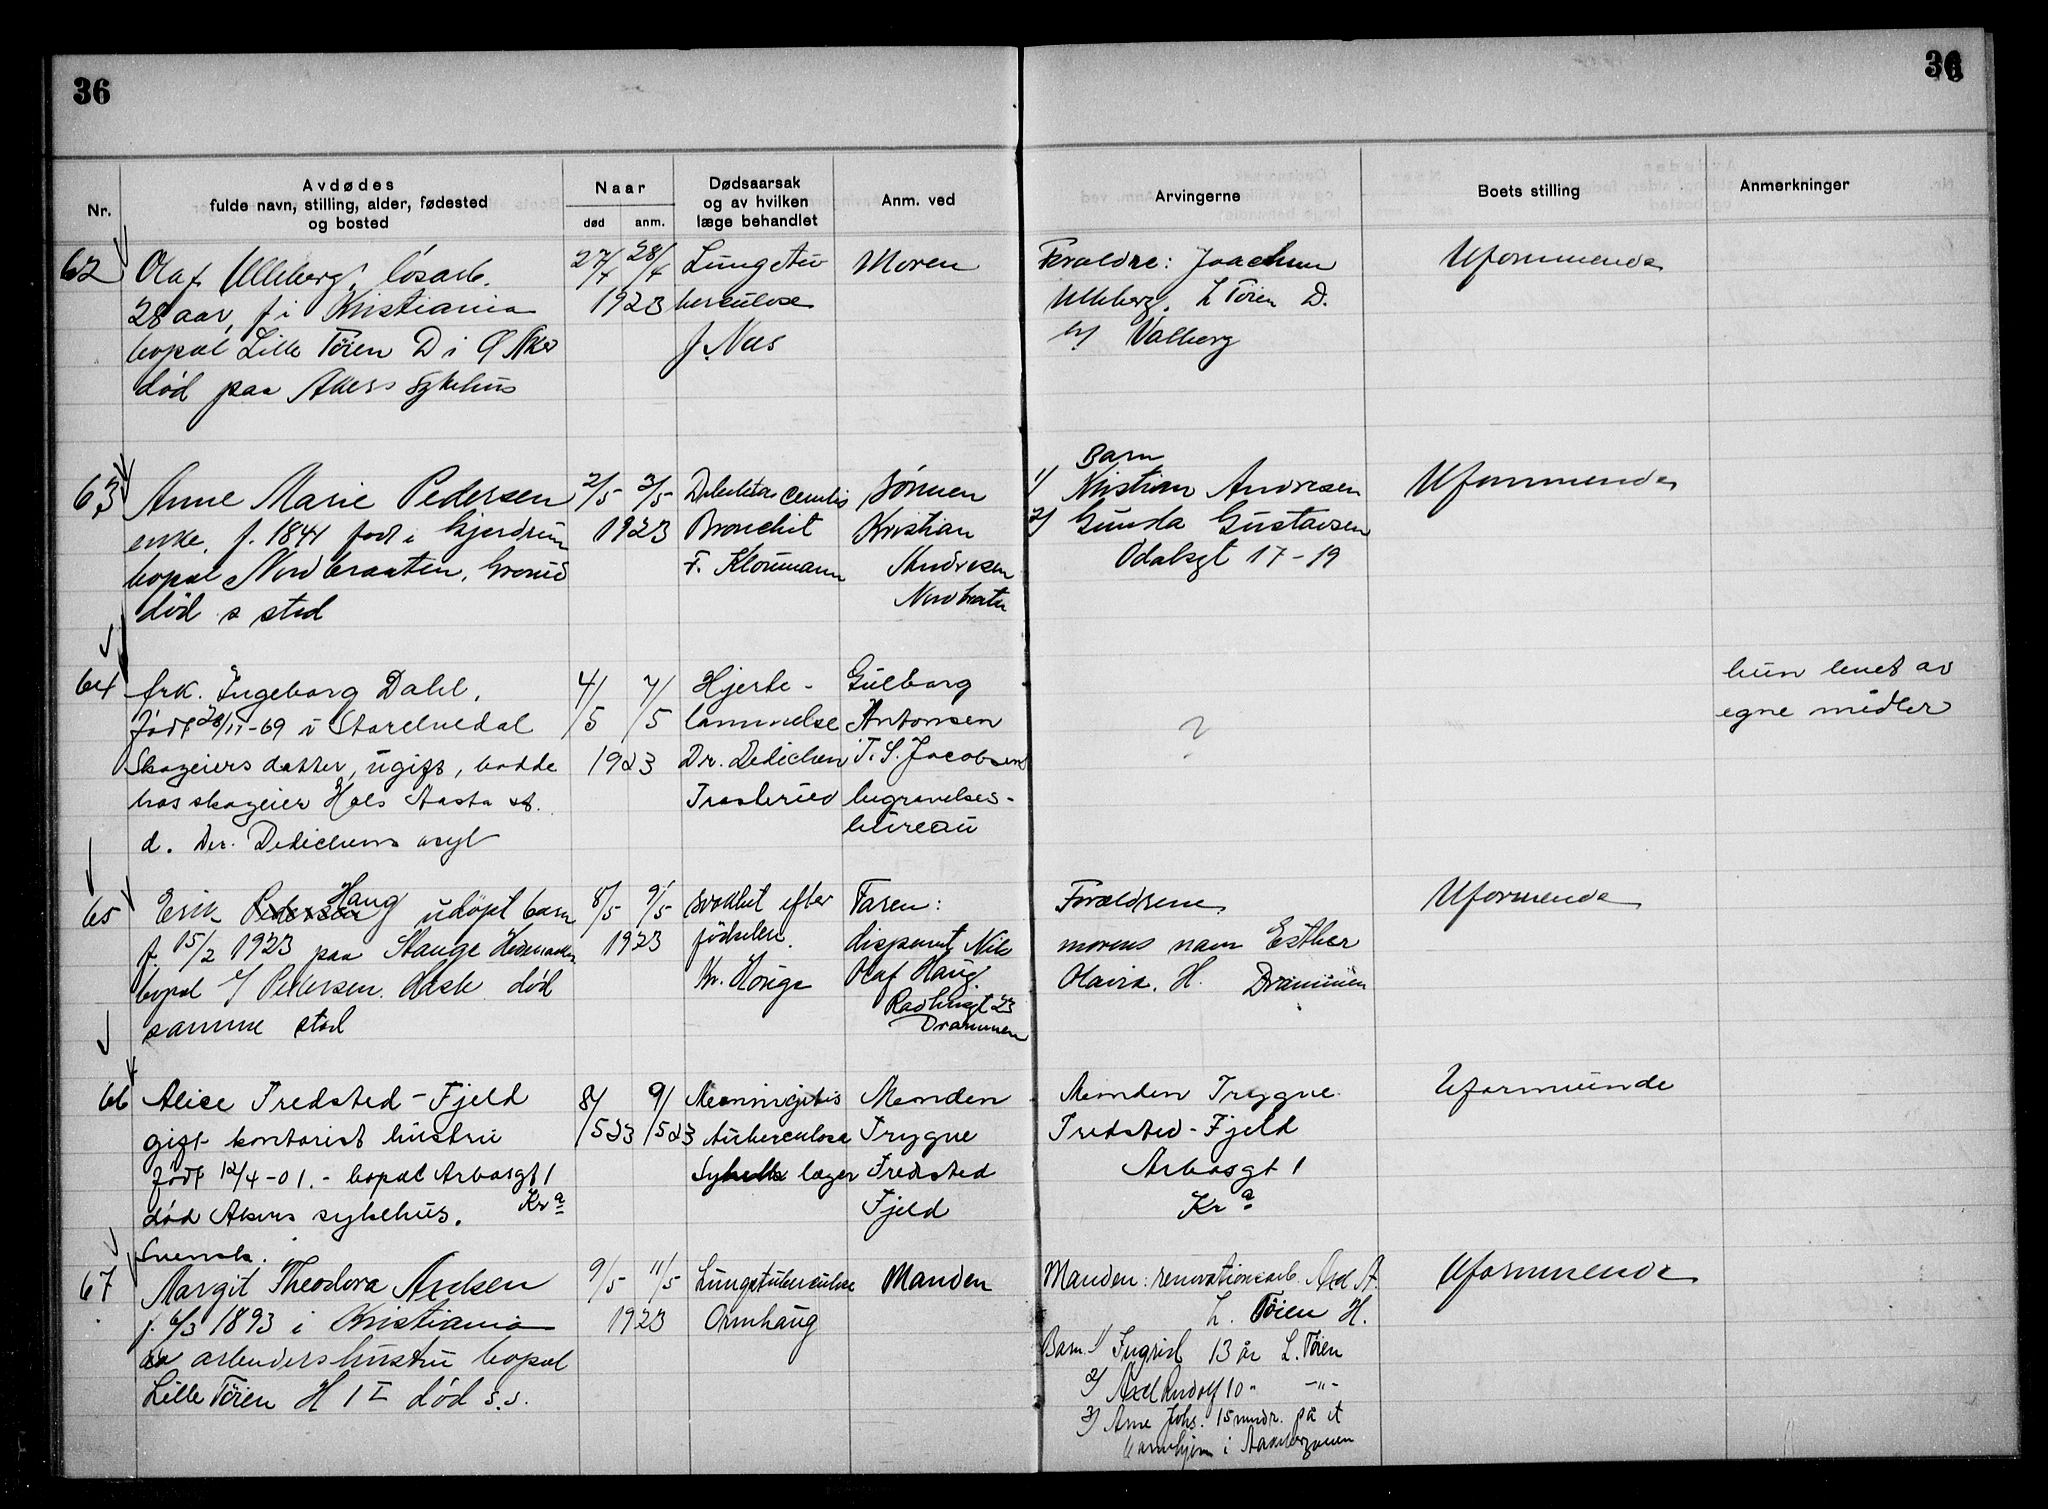 36
36
Nr.
Avdødes
fulde navn, stilling, alder, fødested
og bosted
Naar
død anm.
Dødsaarsak
og av hvilken
læge behandlet
Anm. ved
Arvingerne
Boets stilling
Anmerkninger
62
Olaf Ulleberg, løsarb.
28 aar, f i Kristiania
bopæl Lille Tøien D i Ø Aker
død paa Akers sykehus
27/4 28/4
1923
Lungetu
berculose
J. Næs
Moren
Foreldre: Joachim
Ulleberg, L Tøien D.
Valberg
Uformuende
63
Anne Marie Pedersen
enke, f. 1841 født i Gjerdrum
bopæl Nordbraaten, Grorud
død s sted
2/5 3/5
1923
Bronchit
F. Klouman
Sønnen
Kristian
Andresen
Nordbraten
Barn
1) Kristian Andresen
2) Gunda Gustavsen
Odalsgt 17-19
Uformuende
64
frk. Ingeborg Dahl,
født 28/11-69 i Storelvedal
Skogeiers datter, ugift, bodde
hos skogeier Hols Aasta st.
d. Dr. Dedichens asyl
4/5 7/5
1923
Hjerte-
lammelse
Dr. Dedichen
Trosterud
Gulborg
Antonsen
T. S. Jacobsens
begravelses-
bureau
?
hun levet av
egne midler
65
Erik Pedersen Haug udøpt barn
f. 15/2 1923 paa Stange Hedmarken
bopæl c/ Pedersen. død
samme sted
8/5 9/5
1923
svakhet efter
fødselen.
Kr. Houge
Faren:
disponent Nils
Olaf Haug,
Radhusgt 23
Drammen
Forældrene
morens navn Esther
Olavia. H. Drammen
Uformuende
66
Alice Fredsted-Fjeld
gift kontorist hustru
født 12/4-01.- bopæl Arbosgt 1
Kra
død Akers sykehus.
8/5 23 9/5 23
Meningitis
tuberculosa
Sykeh læger
Manden
Trygve
Fredsted
Fjeld
Manden Trygve
Fredsted-Fjeld
Arbosgt 1
Kra
Uformuende
67
Svensk.
Margit Theodora Axelsen
f. 6/3 1893 i Kristiania
arbeiders hustru bopæl
Lille Tøien H 1 I død s.s.
9/5 11/5
1923
Lungetuberculose
Ormhaug
Manden
Manden: renovationsarb. Axel A.
L. Tøien H.
Barn. 1) Ingrid 13 år L. Tøien
2) Axel Rudolf 10 " -"-
3) Arne Johs. 15 mndr. på et
barnehjem i
Uformuende